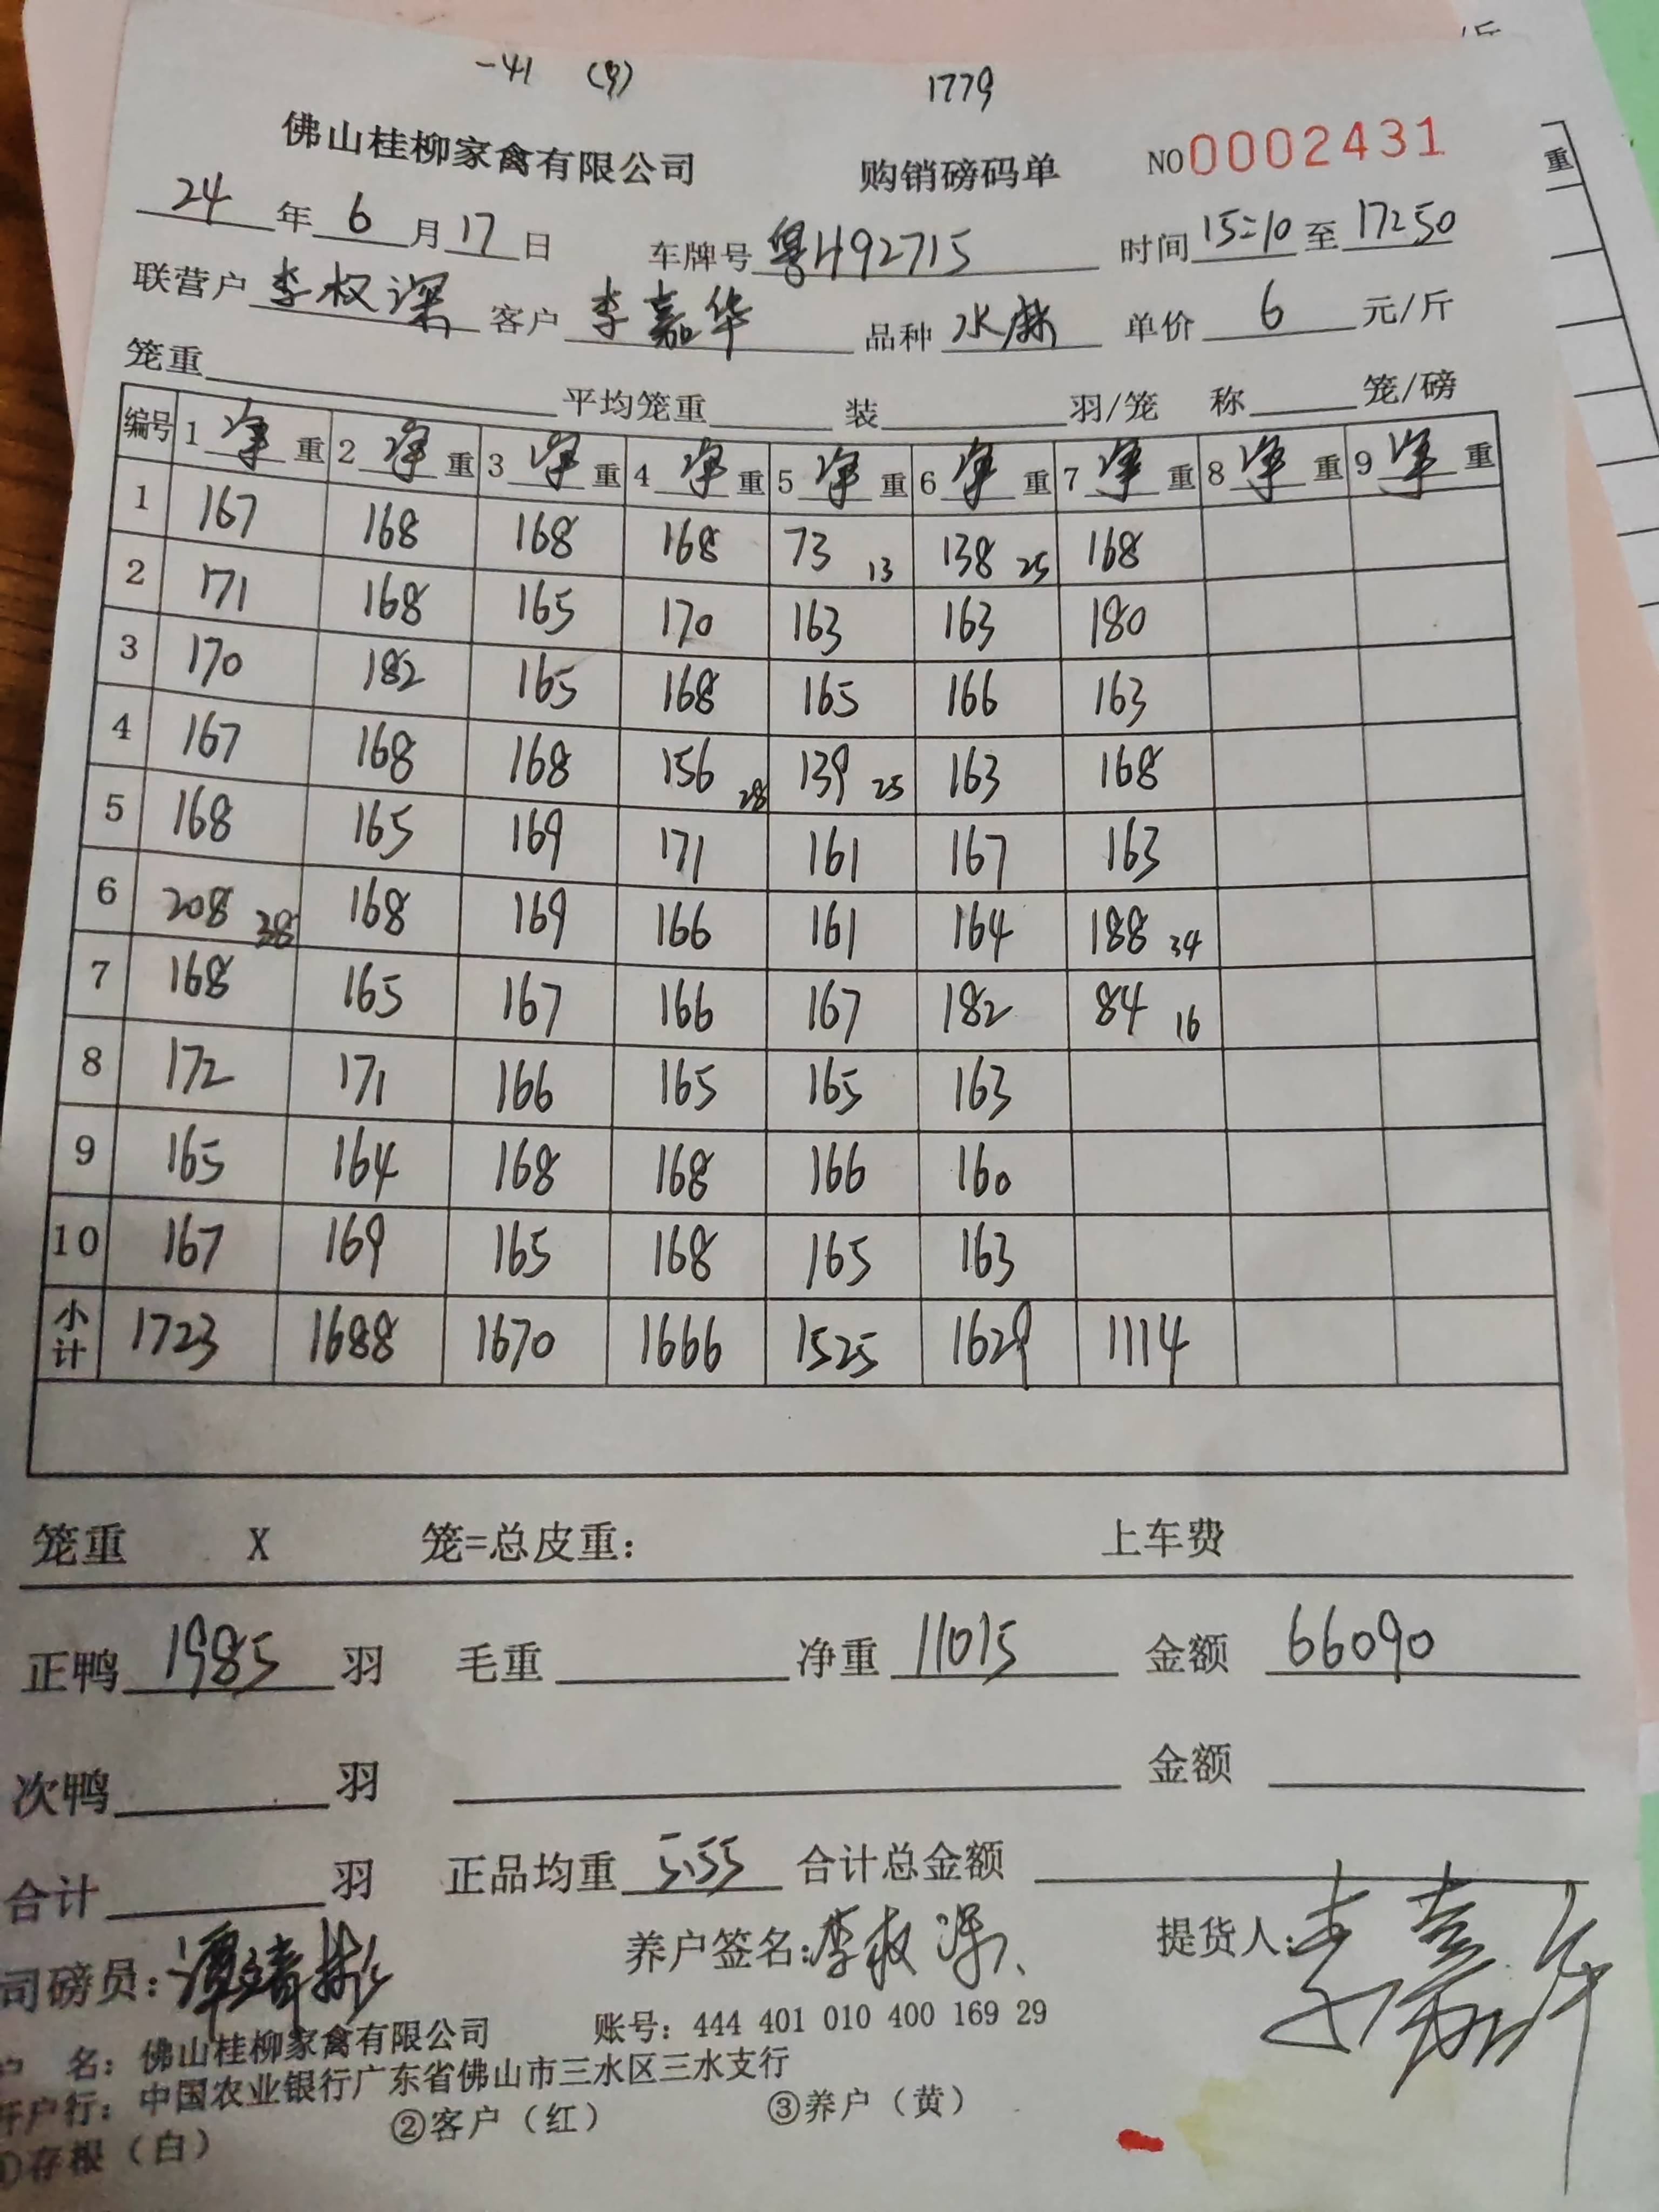 -41 (9) 1779
佛山桂柳家禽有限公司 购销磅码单 NO0002431
24年6月17日 车牌号粤H92715 时间15:10至17:50
联营户李权深 客户李嘉华 品种水麻 单价6元/斤
笼重 平均笼重 装 羽/笼 称 笼/磅
编号 1净重 2净重 3净重 4净重 5净重 6净重 7净重 8净重 9净重
1 167 168 168 168 73 13 138 25 168
2 171 168 165 170 163 163 180
3 170 182 165 168 165 166 163
4 167 168 168 156 28 139 25 163 168
5 168 165 169 171 161 167 163
6 208 38 168 169 166 161 164 188 34
7 168 165 167 166 167 182 84 16
8 172 171 166 165 165 163
9 165 164 168 168 166 160
10 167 169 165 168 165 163
小计 1723 1688 1670 1666 1525 1629 1114
笼重 X 笼=总皮重: 上车费
正鸭1985羽 毛重 净重11015 金额66090
次鸭 羽 金额
合计 羽 正品均重5.55 合计总金额
司磅员: 养户签名:李权深 提货人:李嘉华
户 名: 佛山桂柳家禽有限公司 账号: 444 401 010 400 169 29
开户行: 中国农业银行广东省佛山市三水区三水支行
①存根(白) ②客户(红) ③养户(黄)
重